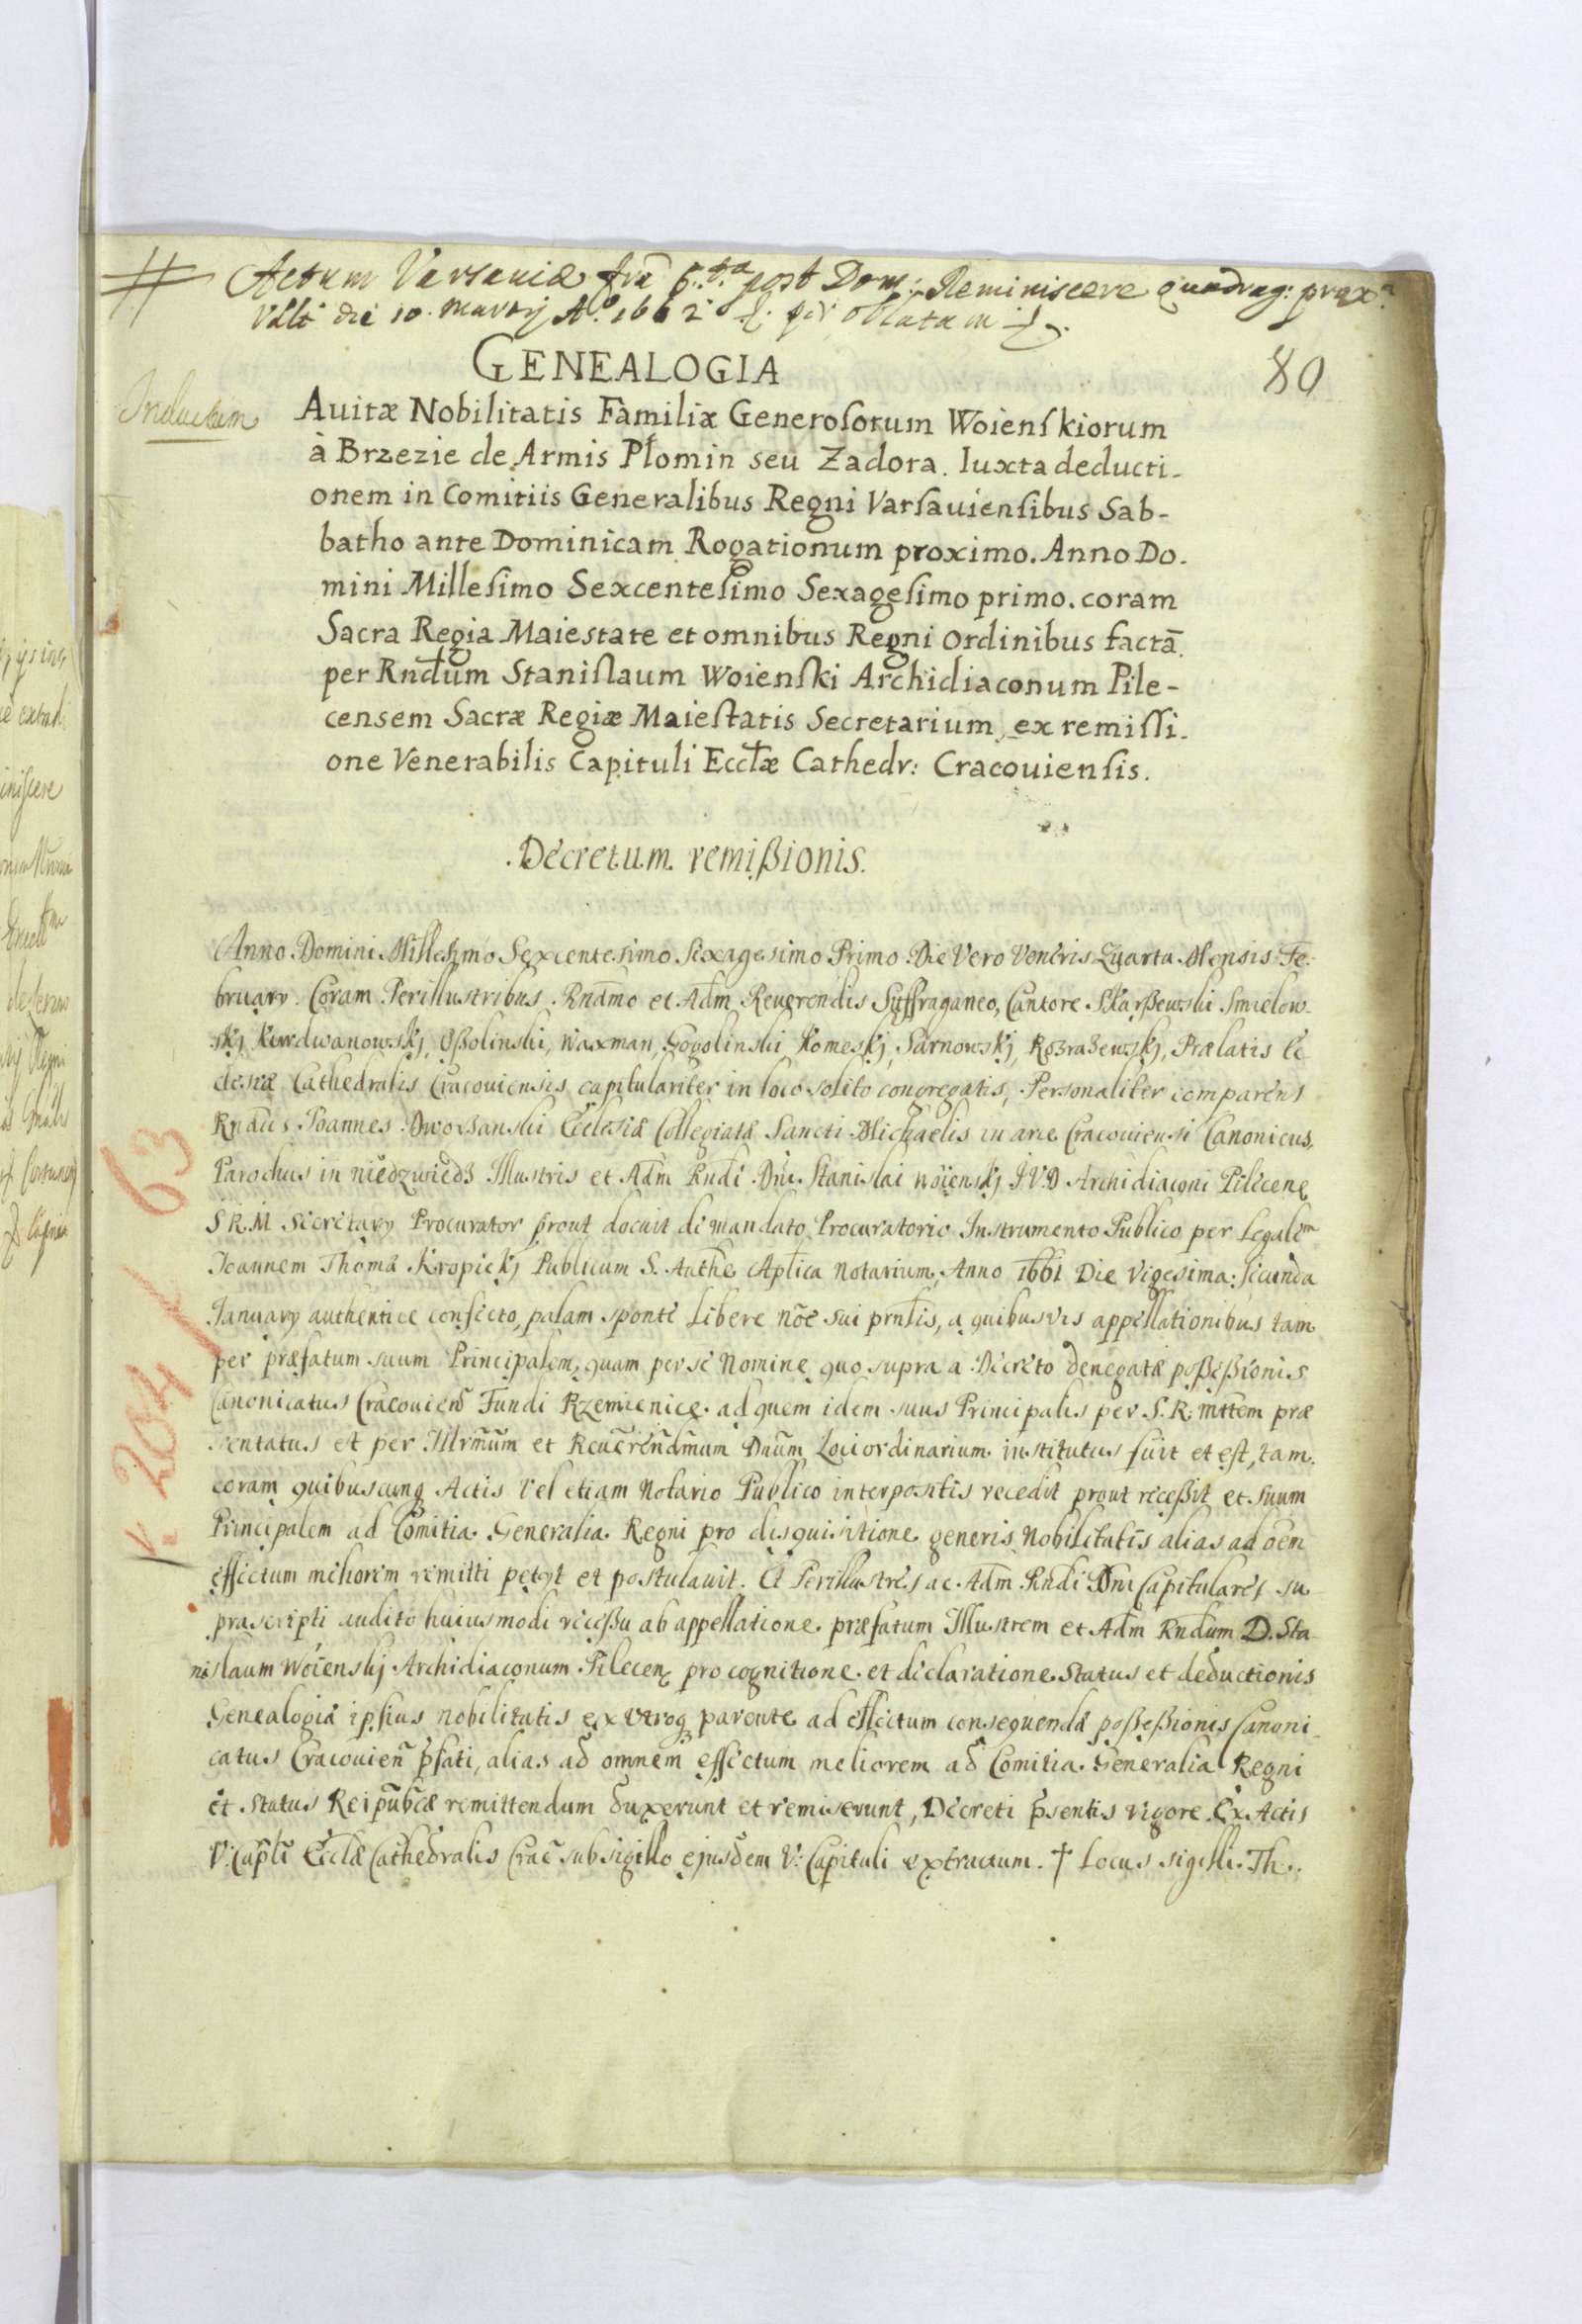 Actum Varsaviæ fria 6.ta post Dom: Reminiscere quadrag: prox.a
die 10. Martij Ao. 1662 per oblatam
80
GENEALOGIA
Inductum
Auitæ Nobilitatis Familiæ Generoſorum Woienſkiorum
à Brzezie de Armis Płomin seu Zadora. Iuxta deducti-
onem in Comitiis Generalibus Regni Varſauienſibus Sab-
batho ante Dominicam Rogationum proximo. Anno Do-
mini Milleſimo Sexcenteſimo Sexageſimo primo. coram
Sacra Regia Maiestate et omnibus Regni Ordinibus factā
per Rndum Staniſlaum Woienſki Archidiaconum Pile-
censem Sacræ Regiæ Maieſtatis Secretarium, ex remiſſi-
one Venerabilis Capituli Ecclæ Cathedr: Cracouienſis.
Decretum remißionis.
Anno Domini Millesimo Sexcentesimo Sexagesimo Primo Die Vero Veneris Quarta Mensis Fe-
bruary. Coram Perillustribus Rndmo et Adm Reuerendis Suffraganeo, Cantore Skarßewski Smielow-
skj Kurdwanowskj, Oßolinski, Waxman, Gogolinski Komeskj, Sarnowskj, Rozrazewskj, Prælatis Ec-
clesiæ Cathedralis Cracouiensis capitulariter in loco solito congregatis, Personaliter comparens
Rndus Joannes Dworzanski Ecclesiæ Collegiatæ Sancti Michaelis in arce Cracouiensi Canonicus,
Parochus in niedzwiedz Illustris et Adm Rndi Dni Stanislai Woienskj J.V.D Archidiaconi Pilecen
S R.M Secretary Procurator prout docuit de mandato Procuratorio Instrumento Publico per Legalem
Joannem Thoma Kropickj Publicum S. Authe Aplica Notarium, Anno 1661 Die Vigesima secunda
January authentice confecto, palam sponte libere nõe sui prnlis, a quibusvis appellationibus tam
per præfatum suum Principalem, quam per se Nomine quo supra a Decreto denegatæ poßeßionis
Canonicatus Cracouien Fundi Rzemienice ad quem idem suus Principalis per S. R. Mttem præ
sentatus et per Illrmum et Reuerendmum Dnum Loci ordinarium institutus fuit et est, tam
coram quibuscunq Actis vel etiam Notario Publico interpositis recedit prout receßit et suum
Principalem ad Comitia Generalia Regni pro disquisitione generis Nobilitatis alias ad oem
effectum meliorem remitti petyt et postulauit. Et Perillustres ac Adm Rndi Dni Capitulares su
prascripti audito huiusmodi receßu ab appellatione præfatum Illustrem et Adm Rndum D. Sta
nislaum Woienskj Archidiaconum Pilecen pro cognitione et declaratione Status et deductionis
Genealogiæ ipsius nobilitatis ex utroq parente ad effectum consequendæ poßeßionis Canoni-
catus Cracouien pfati, alias ad omnem effectum meliorem ad Comitia Generalia Regni
et Status Reipubcæ remittendum duxerunt et remiserunt, Decreti psentis vigore. Ex Actis
V: Capli Ecclæ Cathedralis Crac sub sigillo ejusdem V: Capituli extractum. † Locus sigilli. Th.
204 / 63